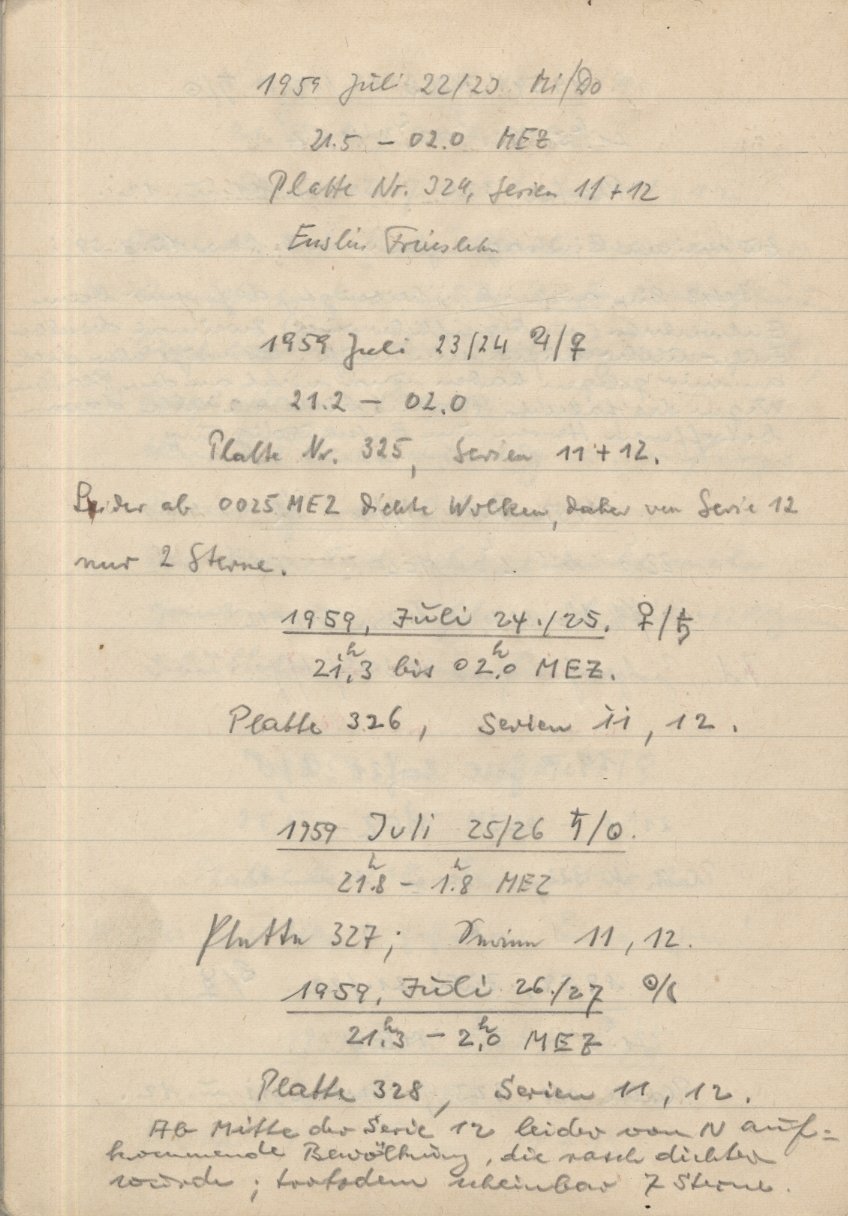 1959 Juli 22/23 Mi/Do
21.5 – 02.0 MEZ
Platte Nr. 324, Serien 11+12
1959 Juli 23/24 ♃/♀
21.2 – 02.0
Platte Nr. 325, Serien 11+12.
Leider ab 0025 MEZ dichte Wolken, daher von Serie 12
nur 2 Sterne.
1959, Juli 24./25. ♀/♄
21ʰ.3 bis 02ʰ.0 MEZ.
Platte 326, Serien 11, 12.
1959 Juli 25/26 ♄/☉.
21ʰ.8 – 1ʰ.8 MEZ
Platte 327; Serien 11, 12.
1959, Juli 26./27 ☉/☾
21ʰ.3 – 2ʰ.0 MEZ
Platte 328, Serien 11, 12.
Ab Mitte der Serie 12 leider von N auf=
kommende Bewölkung, die rasch dichter
würde; trotzdem scheinbar 7 Sterne.